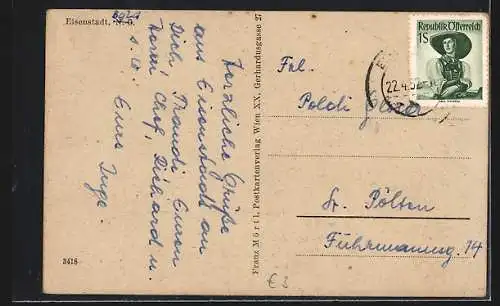 Eisenstadt, N. Ö.
Bgld
Herzliche Grüße
aus Eisenstadt an
Dich, Traudi, Euren
Chef, Richard u.
s. w.
Eure Inge.
3418
Franz Mörtl, Postkartenverlag Wien XX, Gerhardusgasse 27
Frl.
Poldi
St. Pölten
Fuhrmanng. 14
Republik Österreich
1S
22.4.52
€ 3